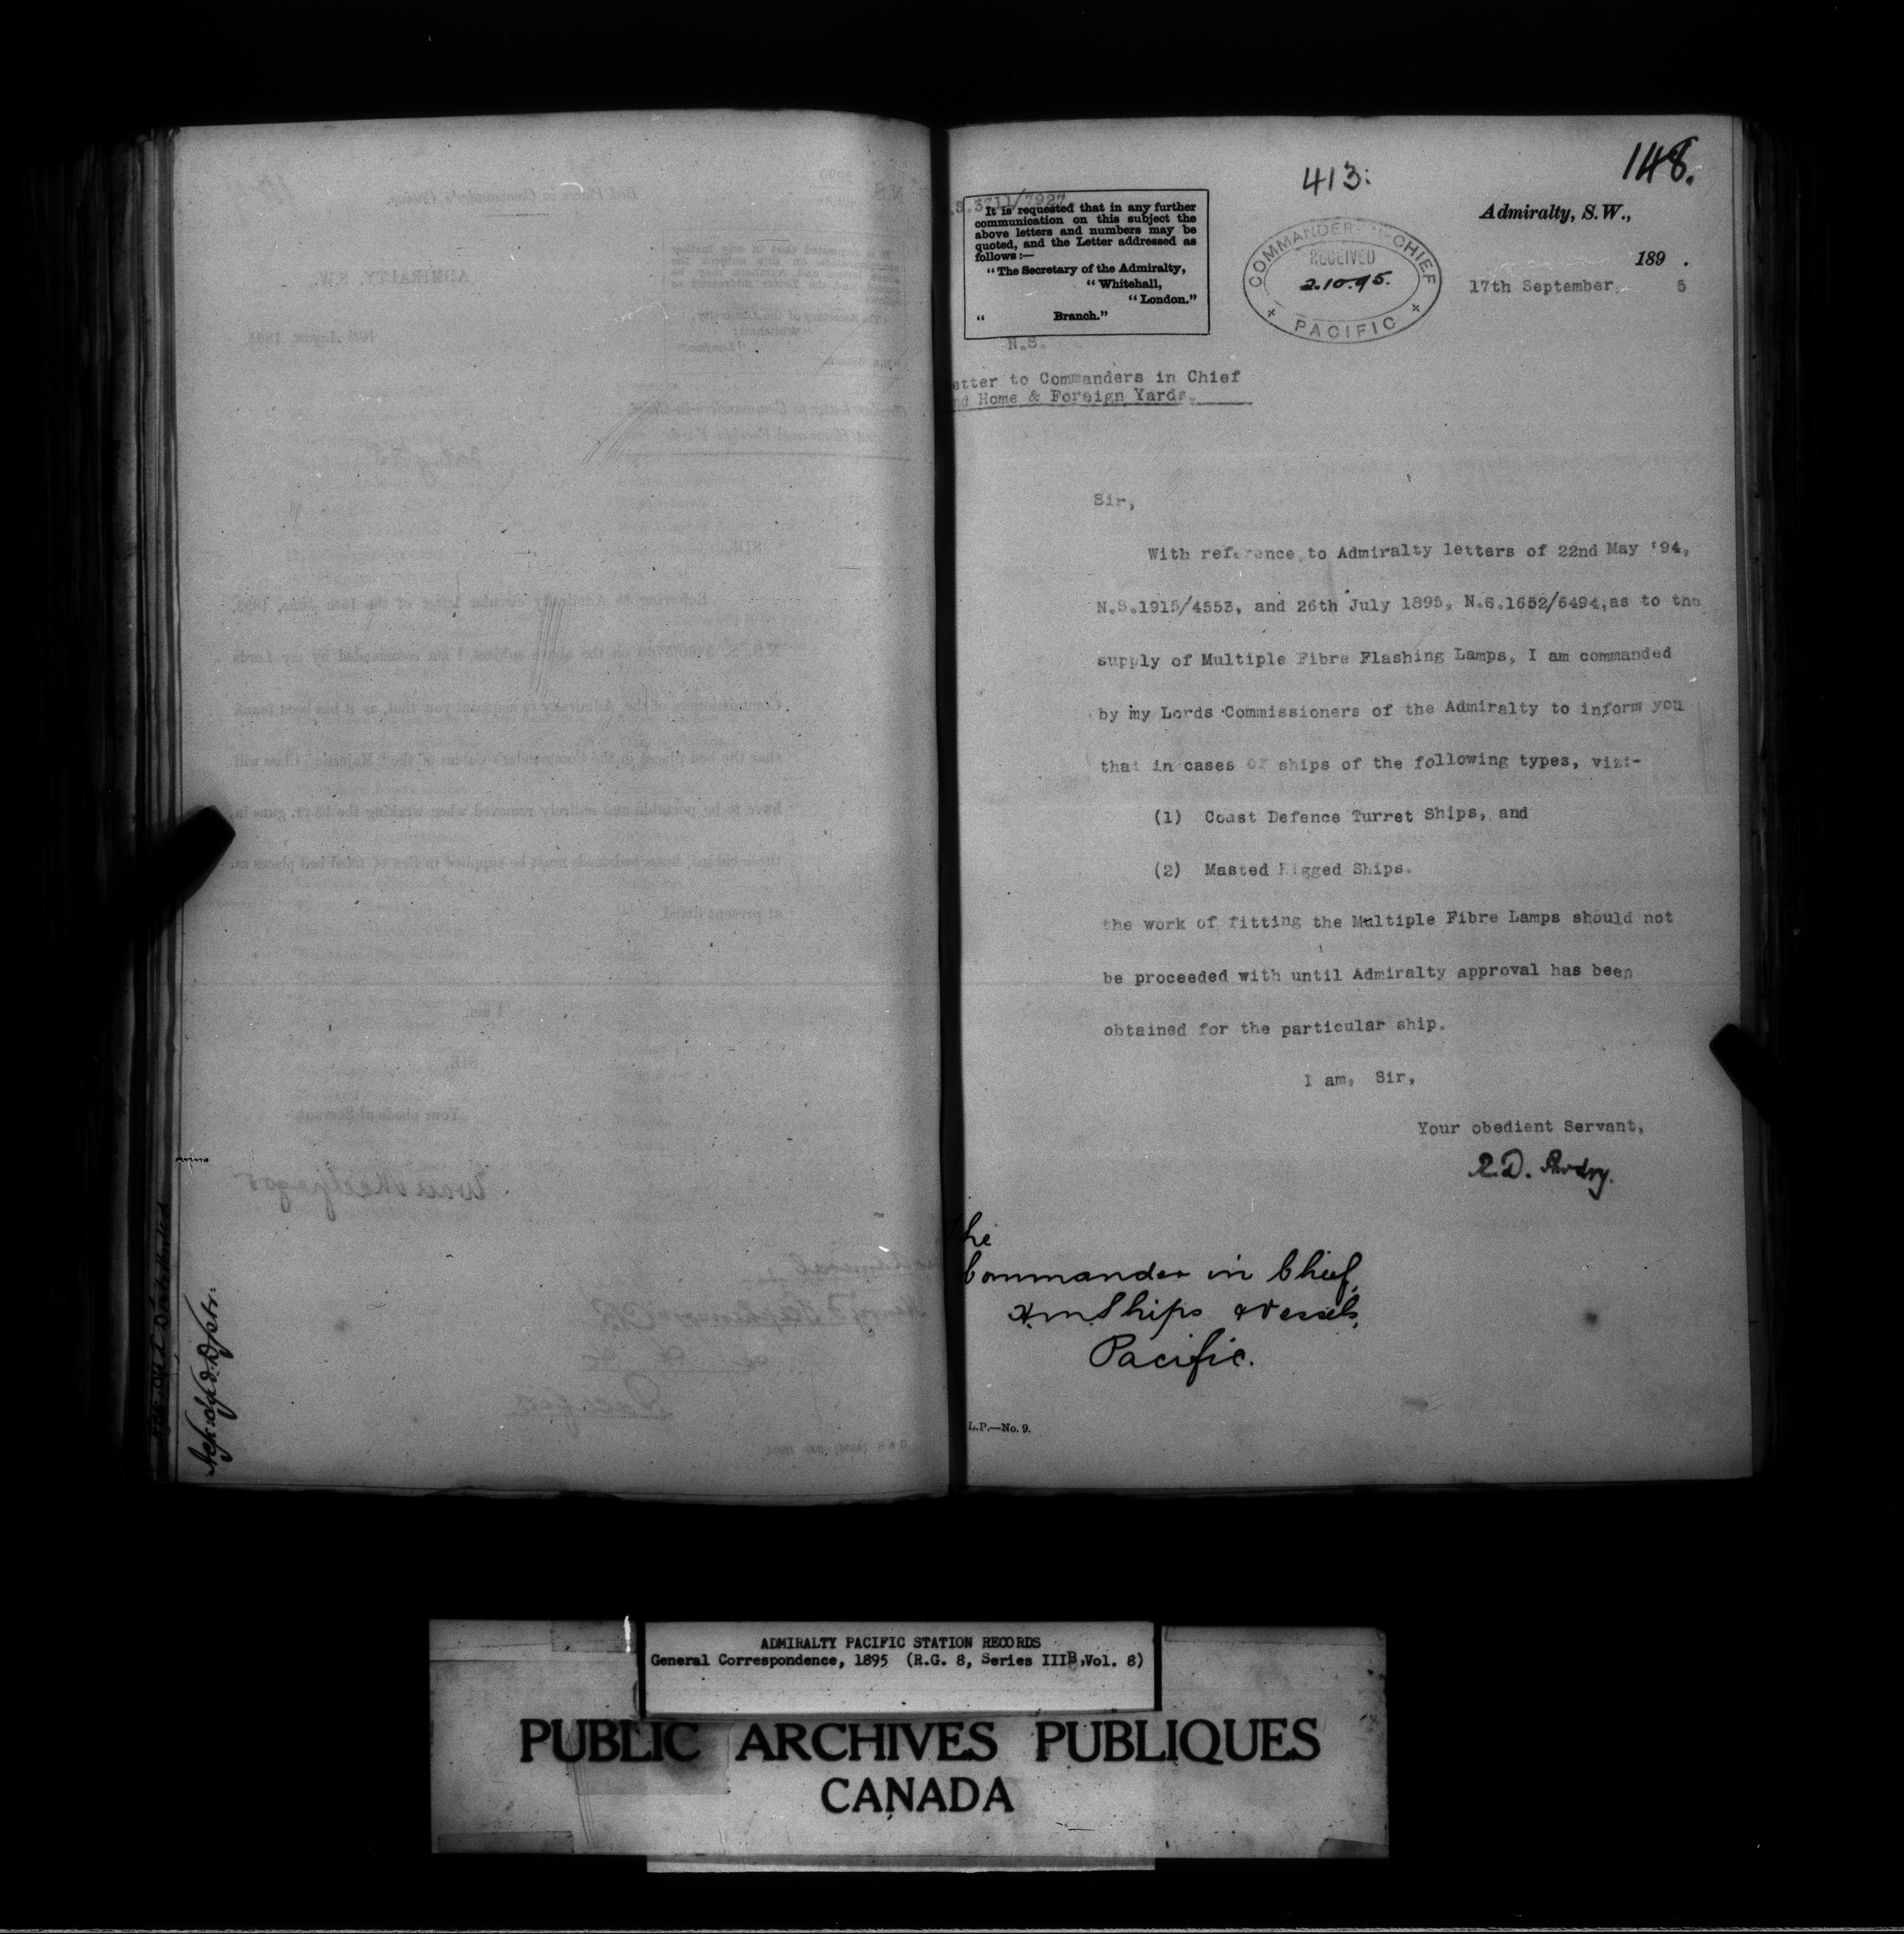 413:
148.
.S.3711/7927.
It is requested that in any further
communication on this subject the
above letters and numbers may be
quoted, and the Letter addressed as
follows:—
“The Secretary of the Admiralty,
“Whitehall,
“London.”
“ Branch.”
N.S.
COMMANDER-IN-CHIEF
RECEIVED
2.10.95.
PACIFIC
Admiralty, S.W.,
189 .
17th September, 5
etter to Commanders in Chief
nd Home & Foreign Yards.
Sir,
With reference to Admiralty letters of 22nd May '94,
N.S.1915/4553, and 26th July 1895, N.S.1652/6494,as to the
supply of Multiple Fibre Flashing Lamps, I am commanded
by my Lords Commissioners of the Admiralty to inform you
that in cases of ships of the following types, viz:-
(1) Coast Defence Turret Ships, and
(2) Masted Rigged Ships.
the work of fitting the Multiple Fibre Lamps should not
be proceeded with until Admiralty approval has been
obtained for the particular ship.
I am, Sir,
Your obedient Servant,
R.D. Awdry.
The
Commander in Chief,
H.M. Ships & Vessels,
Pacific.
L.P.—No. 9.
ADMIRALTY PACIFIC STATION RECORDS
General Correspondence, 1895 (R.G. 8, Series IIIB,Vol. 8)
PUBLIC ARCHIVES PUBLIQUES
CANADA